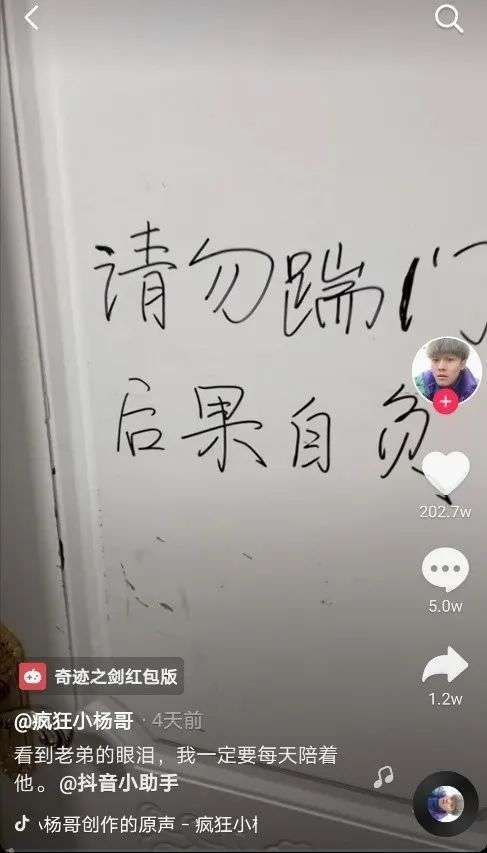 请勿踹门
后果自负
202.7w
5.0w
1.2w
奇迹之剑红包版
@疯狂小杨哥 · 4天前
看到老弟的眼泪，我一定要每天陪着
他。@抖音小助手
小杨哥创作的原声 - 疯狂小杨